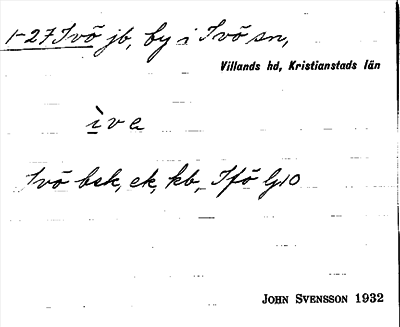 1-27 Ivö jb, by i Ivö sn,
Villands hd, Kristianstads län
ìva
Ivö bsk, ek, kb, Ifö G10
JOHN SVENSSON 1932